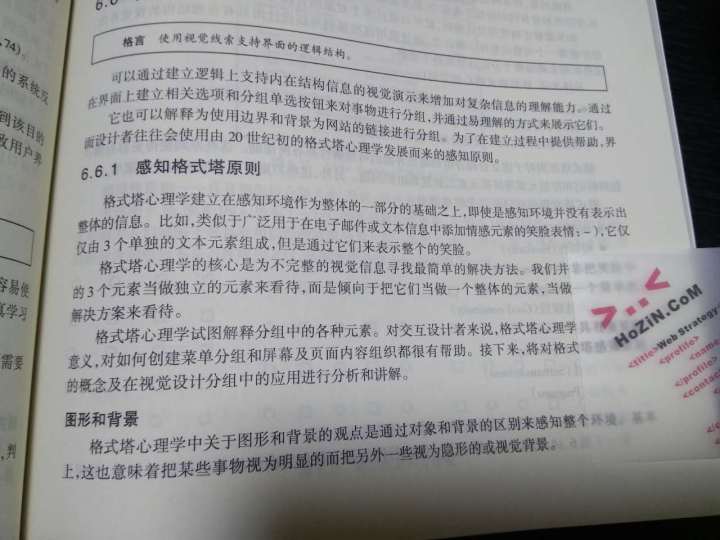 6.6
格言 使用视觉线索支持界面的逻辑结构。
可以通过建立逻辑上支持内在结构信息的视觉演示来增加对复杂信息的理解能力。通过
在界面上建立相关选项和分组单选按钮来对事物进行分组,并通过易理解的方式来展示它们。
它也可以解释为使用边界和背景为网站的链接进行分组。为了在建立过程中提供帮助,界
面设计者往往会使用由 20 世纪初的格式塔心理学发展而来的感知原则。
6.6.1 感知格式塔原则
格式塔心理学建立在感知环境作为整体的一部分的基础之上,即使是感知环境并没有表示出
整体的信息。比如,类似于广泛用于在电子邮件或文本信息中添加情感元素的笑脸表情:-),它仅
仅由 3 个单独的文本元素组成,但是通过它们来表示整个的笑脸。
格式塔心理学的核心是为不完整的视觉信息寻找最简单的解决方法。我们并
的 3 个元素当做独立的元素来看待,而是倾向于把它们当做一个整体的元素,当做
解决方案来看待。
格式塔心理学试图解释分组中的各种元素。对交互设计者来说,格式塔心理学
意义,对如何创建菜单分组和屏幕及页面内容组织都很有帮助。接下来,将对格式
的概念及在视觉设计分组中的应用进行分析和讲解。
图形和背景
格式塔心理学中关于图形和背景的观点是通过对象和背景的区别来感知整个环境。基本
上,这也意味着把某些事物视为明显的而把另外一些视为隐形的或视觉背景。
,74)。
的系统反
到该目的
改用户界
容易使
真学习
需要
,判
>..<
HoZiN.CoM
<title>Web Strategy
<profile>
<name>
</profile>
<contac
</
</c
</
</